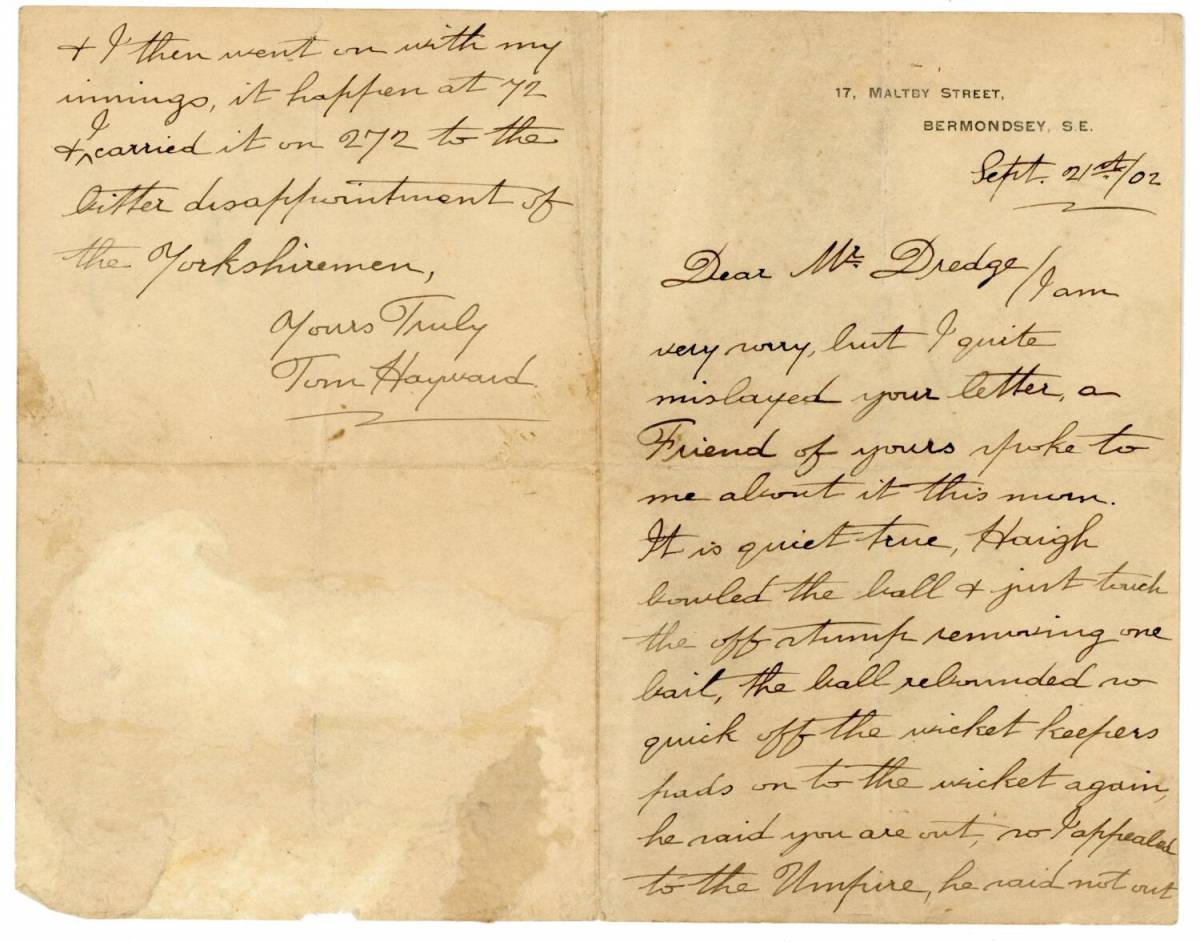 17, MALTBY STREET,
BERMONDSEY, S.E.
Sept. 21st/02
Dear Mr Dredge/I am
very sorry, but I quite
mislayed your letter, a
Friend of yours spoke to
me about it this morn.
It is quiet true, Haigh
bowled the ball & just touch
the off stump removing one
bail, the ball rebounded so
quick off the wicket keepers
pads on to the wicket again,
he said you are out, so I appealed
to the Umpire, he said not out
& I then went on with my
innings, it happen at 72
& I carried it on 272 to the
bitter disappointment of
the Yorkshiremen,
Yours Truly
Tom Hayward